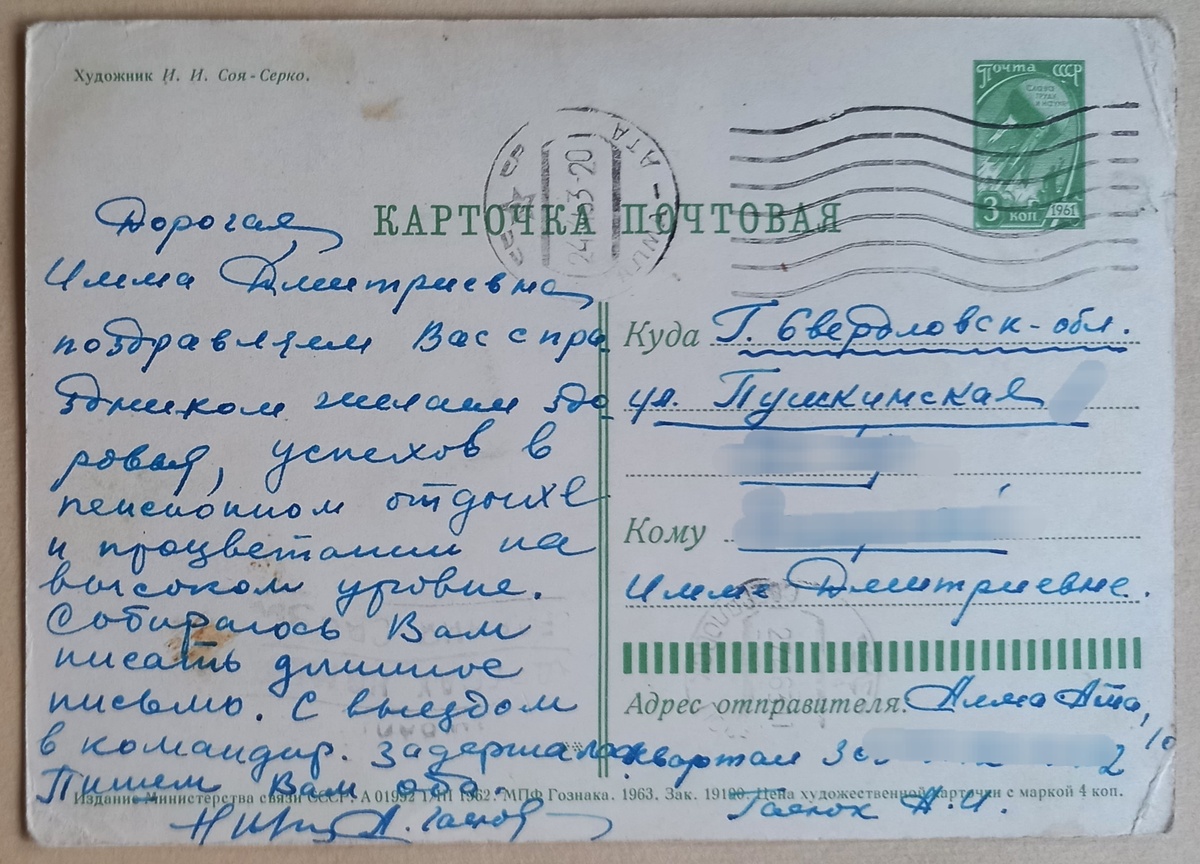 Художник И. И. Соя-Серко.
Почта СССР
СЛАВА ТРУДУ И НАУКЕ
3 коп 1961
СССР
АЛМА-АТА
КАРТОЧКА ПОЧТОВАЯ
Дорогая,
Имма Дмитриевна
поздравляем Вас с пра
здником желаем здо
ровья, успехов в
пенсионном отдыхе
и процветании на
высоком уровне.
Собиралось Вам
писать длинное
письмо. С выездом
в командир. задержалось
Пишем Вам оба.
Куда Г. Свердловск-обл.
ул. Пушкинская
Кому
Имме Дмитриевне.
Адрес отправителя. Алма Ата,
квартал
Гаенок А.И.
Издание Министерства связи СССР. А 01952 1962. МПФ Гознака. 1963. Зак. 19100. Цена художественной карточки с маркой 4 коп.